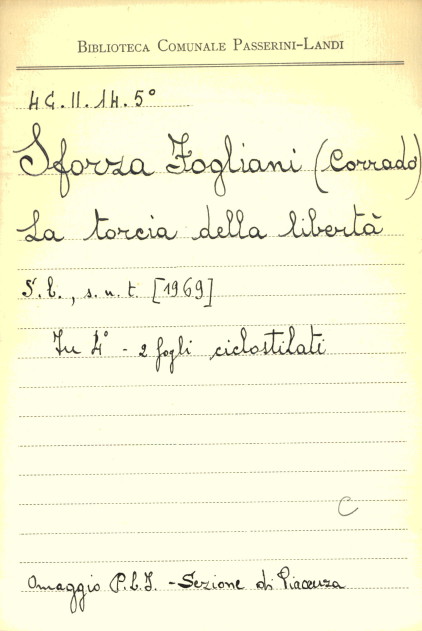 BIBLIOTECA COMUNALE PASSERINI-LANDI
4G.II.14.5°
Sforza Fogliani (Corrado)
La torcia della libertà
S.l., s.n.t. [1969]
In 4° - 2 fogli ciclostilati
C
Omaggio P.L.I. - Sezione di Piacenza